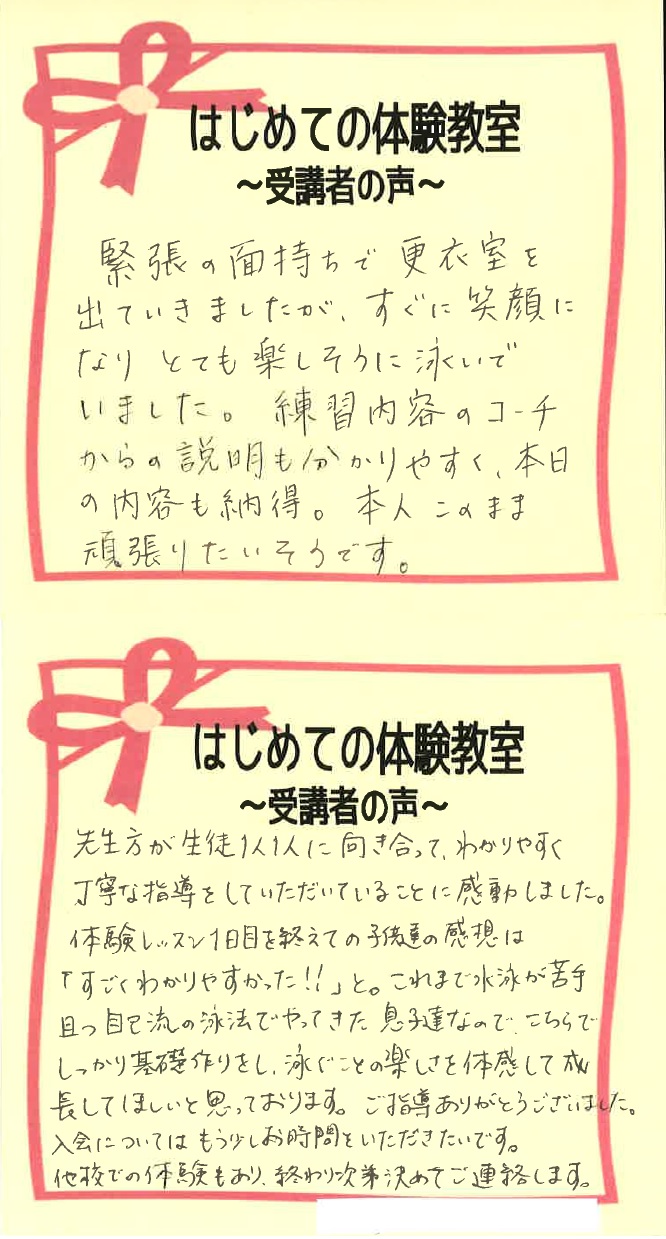 はじめての体験教室
～受講者の声～
緊張の面持ちで更衣室を
出ていきましたが、すぐに笑顔に
なりとても楽しそうに泳いで
いました。練習内容のコーチ
からの説明も分かりやすく、本日
の内容も納得。本人このまま
頑張りたいそうです。
はじめての体験教室
～受講者の声～
先生方が生徒1人1人に向き合って、わかりやすく
丁寧な指導をしていただいていることに感動しました。
体験レッスン1日目を終えての子供達の感想は
「すごくわかりやすかった!!」と。これまで水泳が苦手
且つ自己流の泳法でやってきた息子達なので、こちらで
しっかり基礎作りをし、泳ぐことの楽しさを体感して成
長してほしいと思っております。ご指導ありがとうございました。
入会についてはもう少しお時間をいただきたいです。
他校での体験もあり、終わり次第決めてご連絡します。